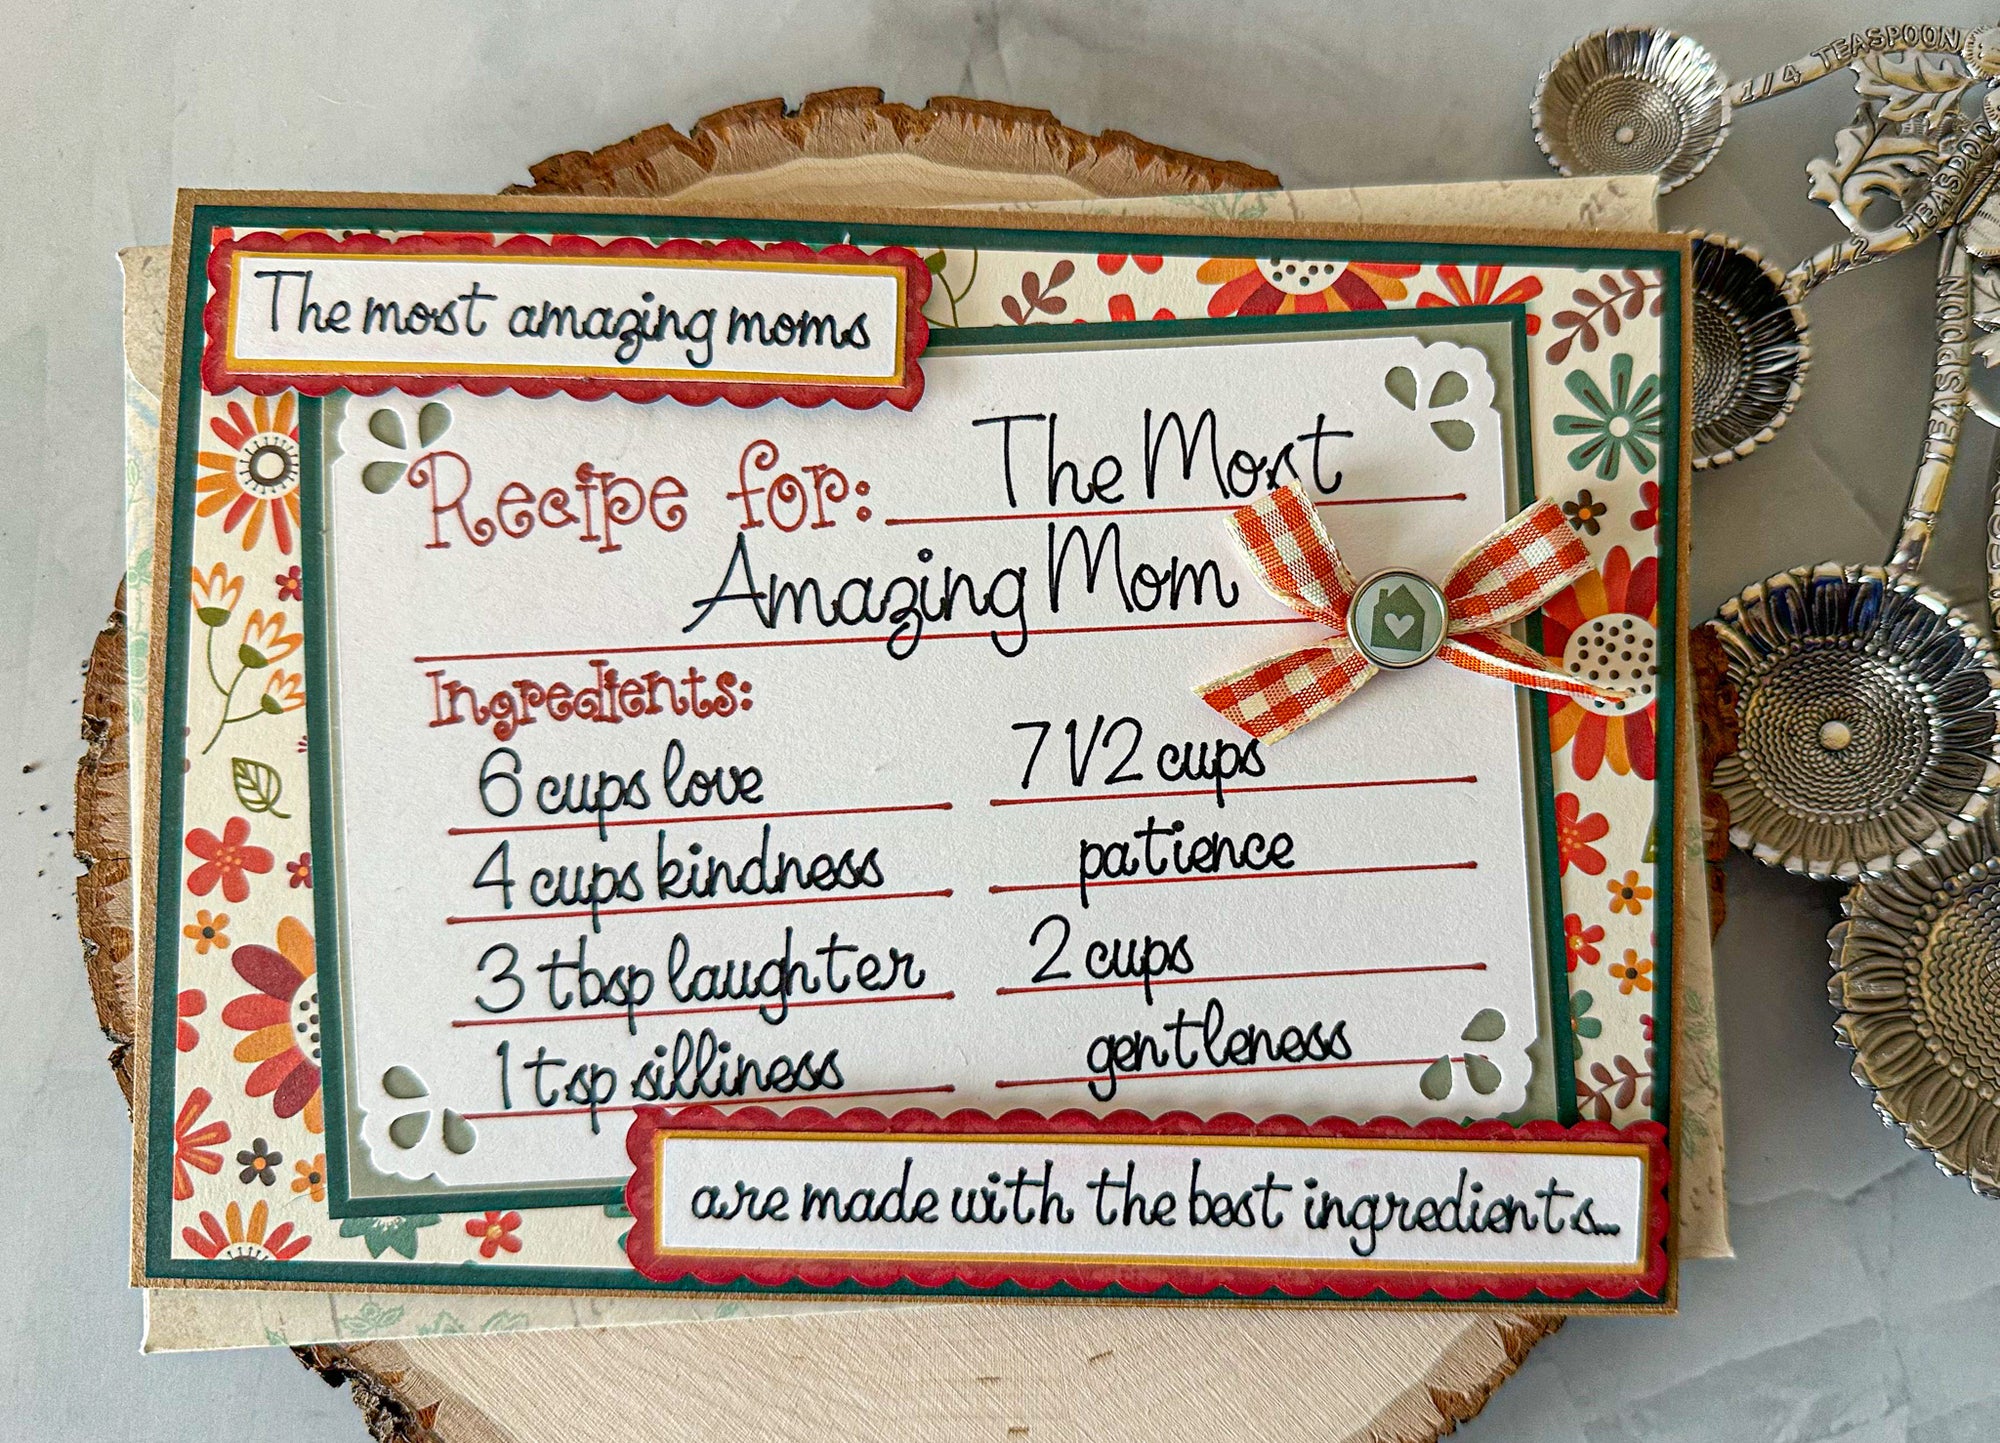 The most amazing moms
Recipe for: The Most
Amazing Mom
Ingredients:
6 cups love
4 cups kindness
3 tbsp laughter
1 tsp silliness
7 1/2 cups
patience
2 cups
gentleness
are made with the best ingredients...
1/4 TEASPOON
1/2 TEASPOON
TEASPOON